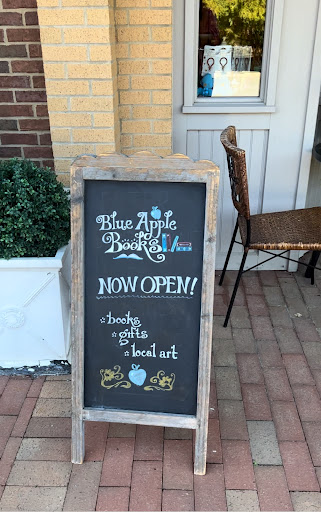 Blue Apple
Books
NOW OPEN!
books
gifts
local art